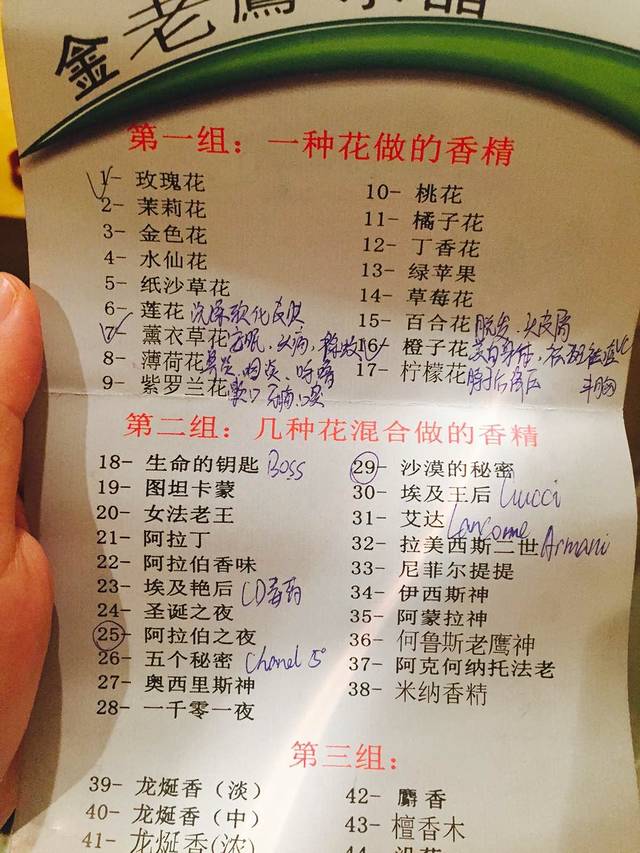 金老鹰
第一组：一种花做的香精
1- 玫瑰花
2- 茉莉花
3- 金色花
4- 水仙花
5- 纸沙草花
6- 莲花
7- 薰衣草花
8- 薄荷花
9- 紫罗兰花
10- 桃花
11- 橘子花
12- 丁香花
13- 绿苹果
14- 草莓花
15- 百合花 脱发
16- 橙子花
17- 柠檬花
第二组：几种花混合做的香精
18- 生命的钥匙 Boss
19- 图坦卡蒙
20- 女法老王
21- 阿拉丁
22- 阿拉伯香味
23- 埃及艳后 CD毒药
24- 圣诞之夜
25- 阿拉伯之夜
26- 五个秘密 Chanel 5°
27- 奥西里斯神
28- 一千零一夜
29- 沙漠的秘密
30- 埃及王后 Gucci
31- 艾达 Lancome
32- 拉美西斯二世 Armani
33- 尼菲尔提提
34- 伊西斯神
35- 阿蒙拉神
36- 何鲁斯老鹰神
37- 阿克何纳托法老
38- 米纳香精
第三组：
39- 龙烻香（淡）
40- 龙烻香（中）
41- 龙烻香(浓)
42- 麝香
43- 檀香木
44-